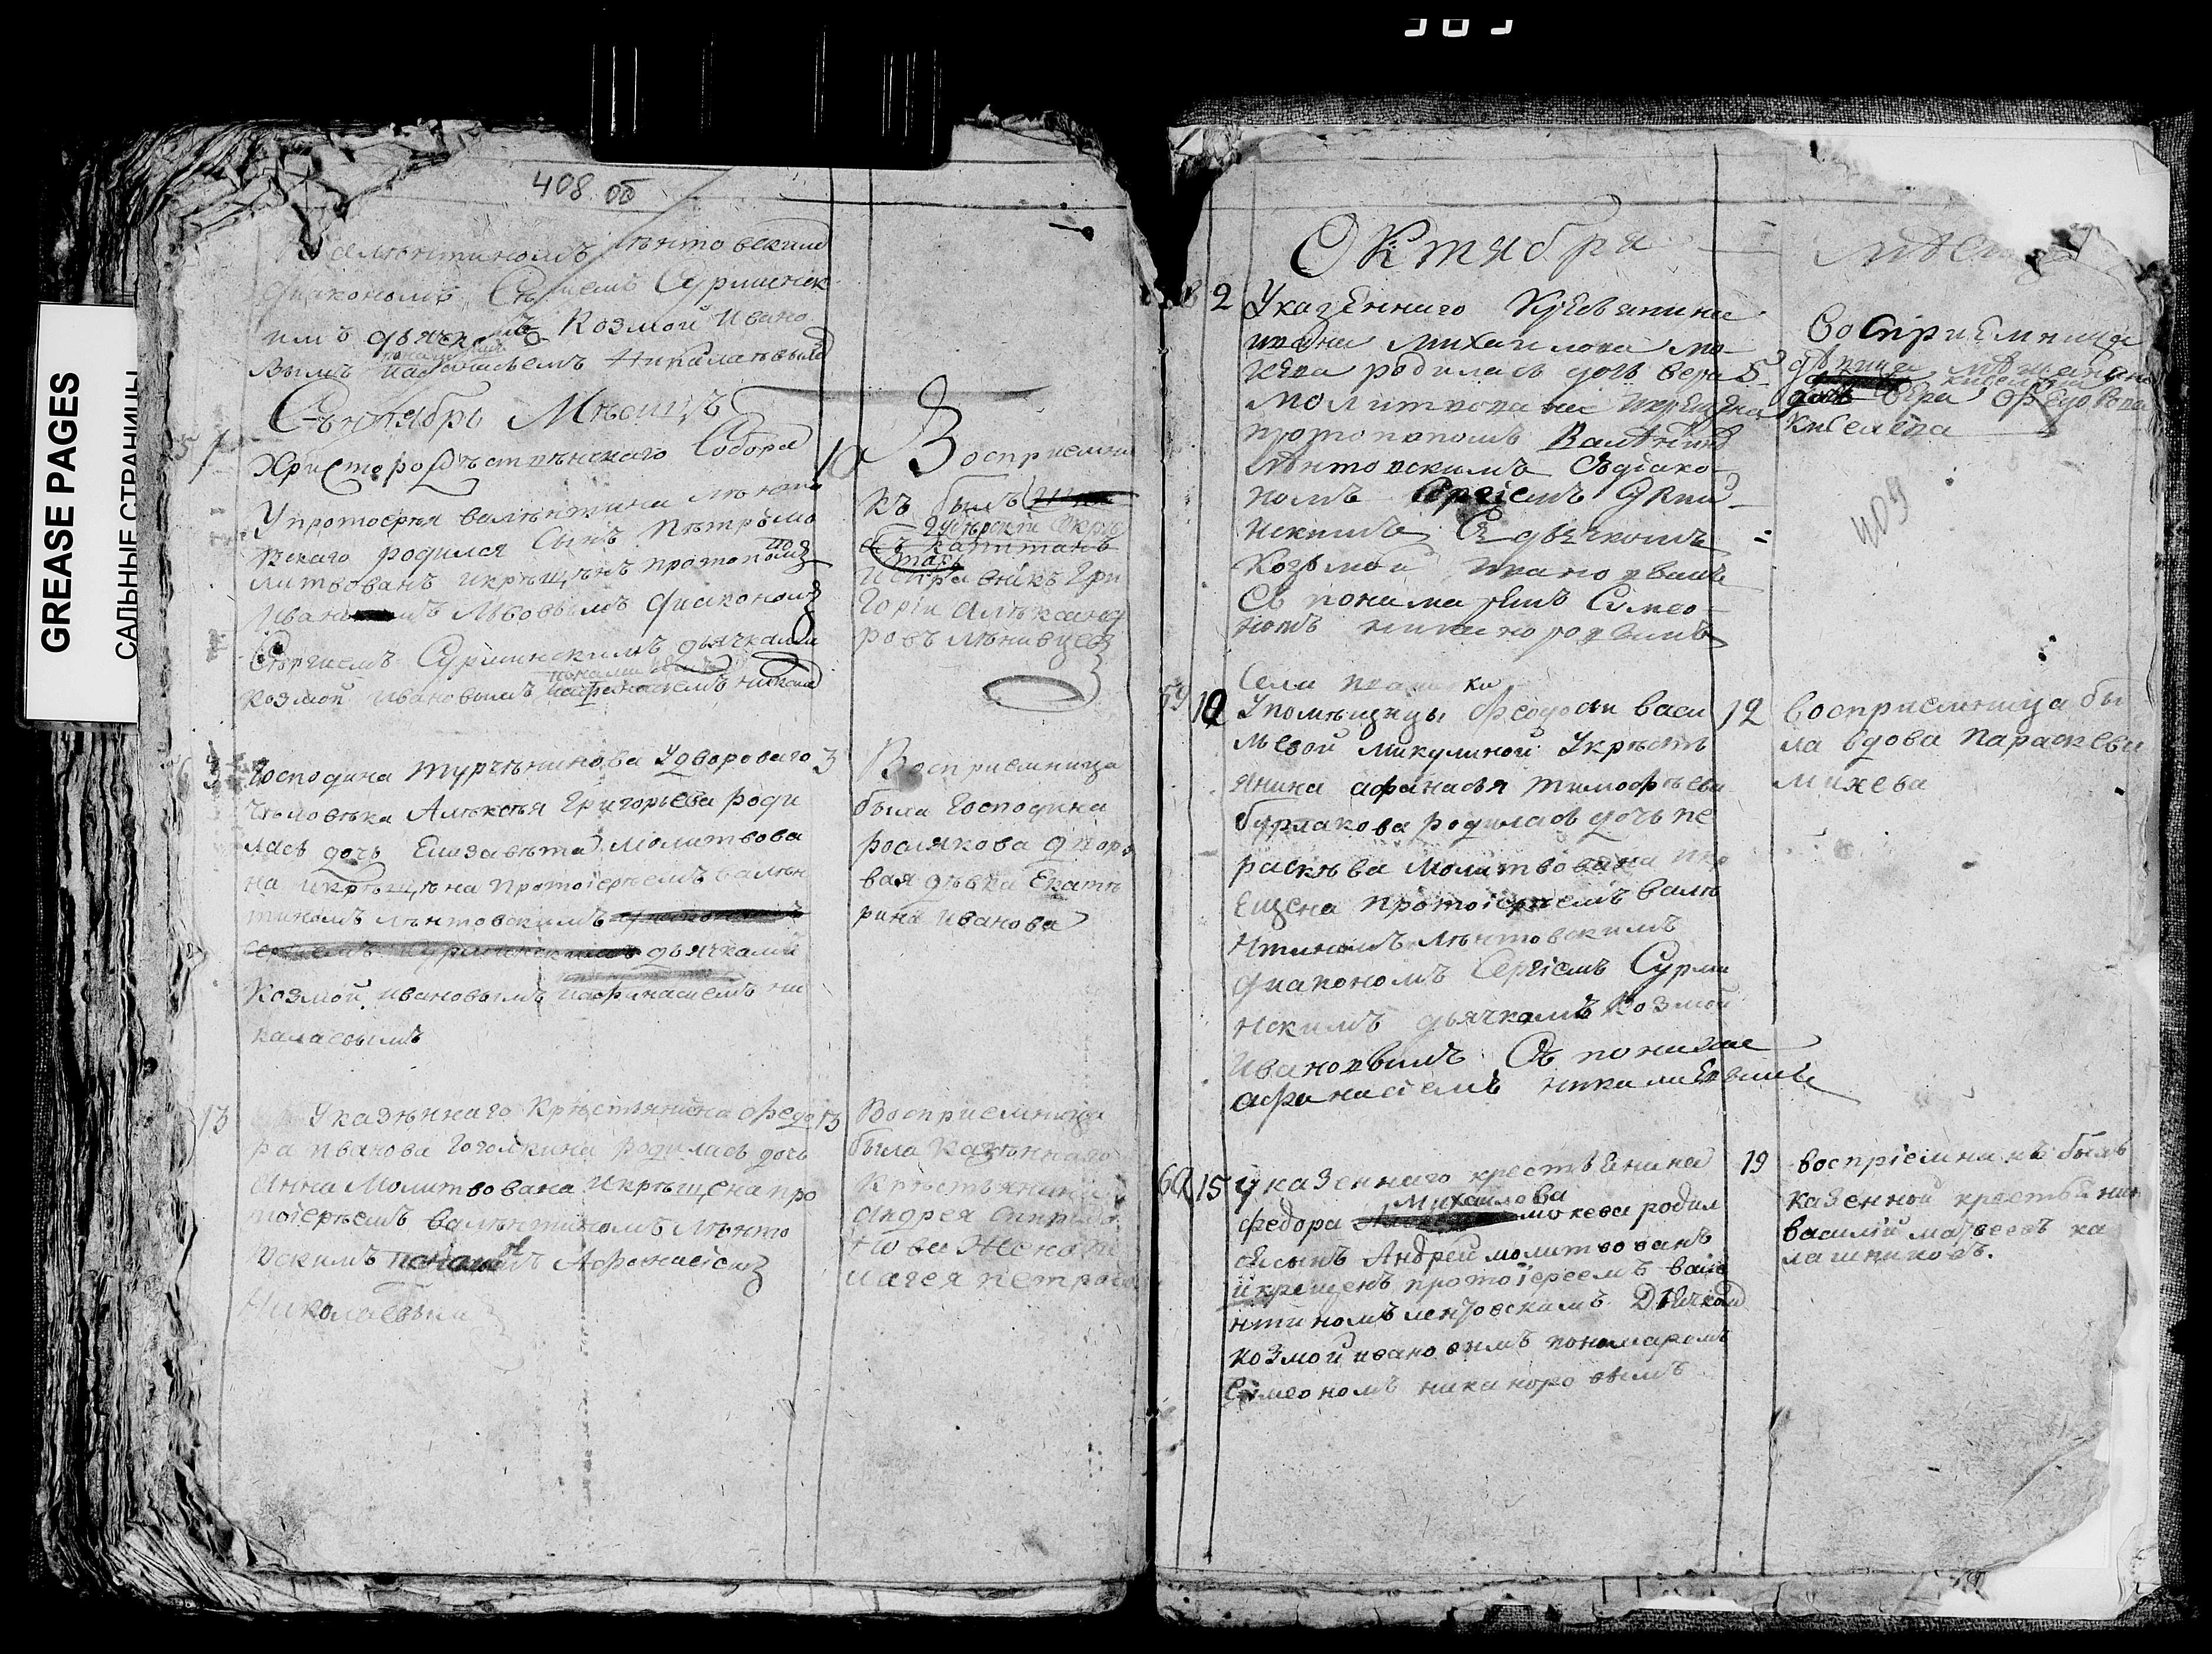 GREASE PAGES
САЛЬНЫЕ СТРАНИЦЫ
408 об
Валѣнтиномъ лѣнтовским
диакономъ Сѣргиемъ Сурминск
имъ дьячкомъ Козмой Ивано
вымъ иафонасьемъ Никалаевым
Сѣнтябрь Мѣсяцъ
1
Христорождѣствѣнскаго Собора
У протоерѣя валѣнтина лѣнто
вскаго родился Сынъ Пѣтръ мо
литвованъ икрѣщѣнъ протопопом
Иваномъ Львовымъ диакономъ
Сѣргиемъ Сурминскимъ дьячками
Козмой Ивановымъ иафонасиемъ никала
10
Восприемни
къ былъ
исправникъ Гри
горiй алѣксанд
ровъ лѣнивцев
3
Господина турчѣнинова Удвороваго
чѣловѣка Алѣксѣя Григорьева роди
лась дочь Елизавѣта Молитвова
на икрѣщѣна Протоiерѣемъ валѣн
тиномъ лѣнтовскимъ
дьячками
Козмой ивановымъ иафанасиемъ ни
калаевымъ
3
Восприемница
была Господина
рослякова дворо
вая дѣвка Екатѣ
рина иванова
13
Указѣннаго Крѣстьянина федо
ра иванова родилась дочь
Анна Молитвована икрѣщена про
тоiерѣемъ валѣнтиномъ лѣнто
вскимъ Афанасiем
Николаевым
13
Восприемница
была Казѣннаго
Крѣстьянина
андрея
нова жена
Петрова
Октября
2
Указеннаго Крѣстьянина
ивана михаилова мо
кева родилась дочь вера
молитвована икрещена
протопопомъ Валѣнтин
лѣнтовскимъ Съдiако
номъ Сергiемъ Сурми
нскимъ Съ дьячкомъ
Козьмой ивановымъ
Съ понамаремъ Симео
номъ никаноровымъ
5
Восприемница
дѣвица
вѣра Федорова
Киселева
409
59
10
Села
Упомѣщицы феодосьи васи
льевой микулиной Укрѣсть
янина афанасья тимофѣева
бурлакова родилась дочь пе
раскѣва молитвована икр
ещена протоiерѣемъ валѣ
нтиномъ лѣнтовскимъ
диакономъ Сергiемъ Сурми
нскимъ дьячкомъ Козмой
Ивановымъ Съ понамаре
афанасiемъ никалаевымъ
12
восприемница бы
ла вдова параскева
михева
60
15
Указеннаго крестьѣнина
федора Михаилова мокева родил
ся сынъ Андрей молитвованъ
икрещенъ протоiереемъ вале
нтиномъ лентовскимъ Дьячком
козмой ивановымъ пономаремъ
Симеономъ никаноровымъ
19
воспрiемникъ былъ
казенной крестьянин
василiй матвеевъ ка
лашниковъ.